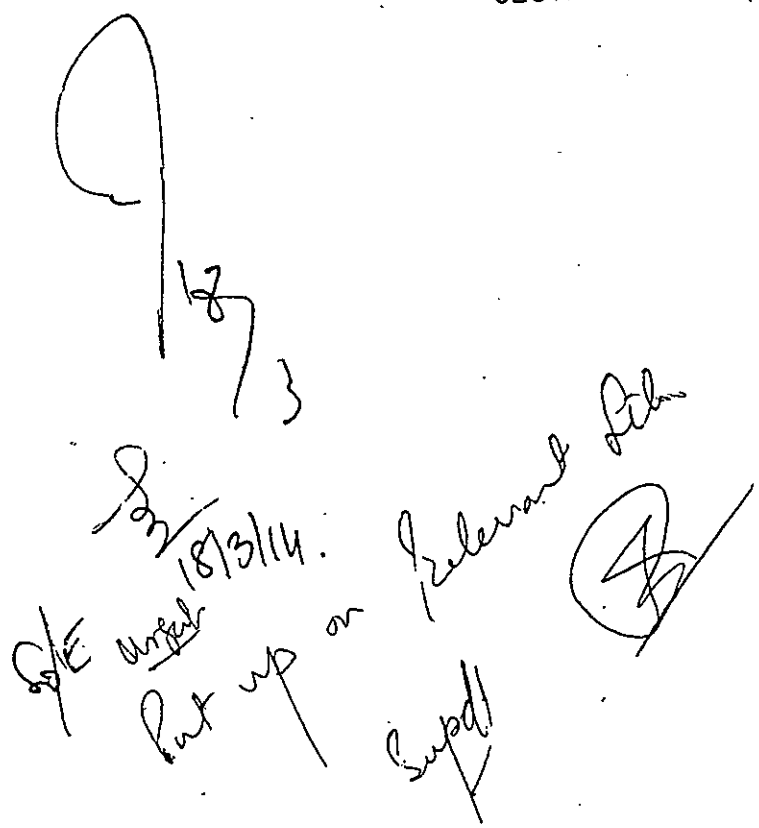 18/3
18/3/14.
S/E urgent
Put up on Relevant file
Supdt